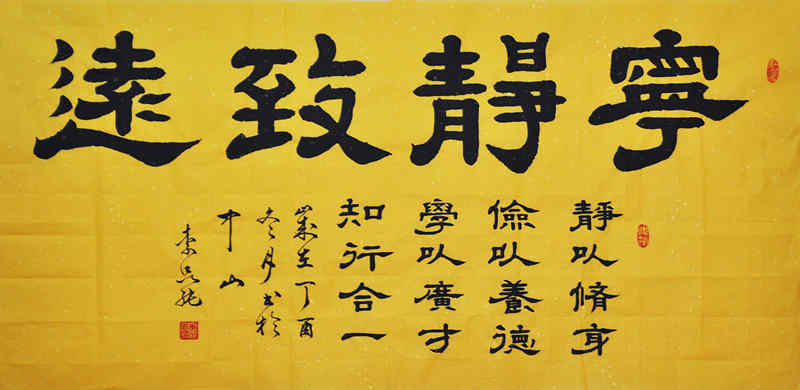 寧靜致遠
靜以脩身
儉以養德
學以廣才
知行合一
歲在丁酉
冬月书於
中山